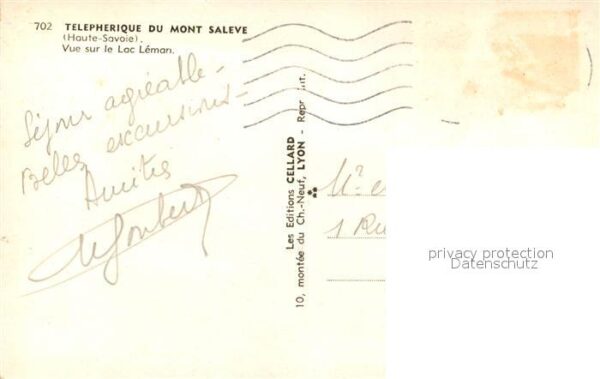 702 TELEPHERIQUE DU MONT SALEVE
(Haute-Savoie).
Vue sur le Lac Léman.
Séjour agréable -
Belles excursions -
Amitiés
Les Editions CELLARD
10, montée du Ch.-Neuf, LYON - Repr. int.
1 Rue
privacy protection
Datenschutz